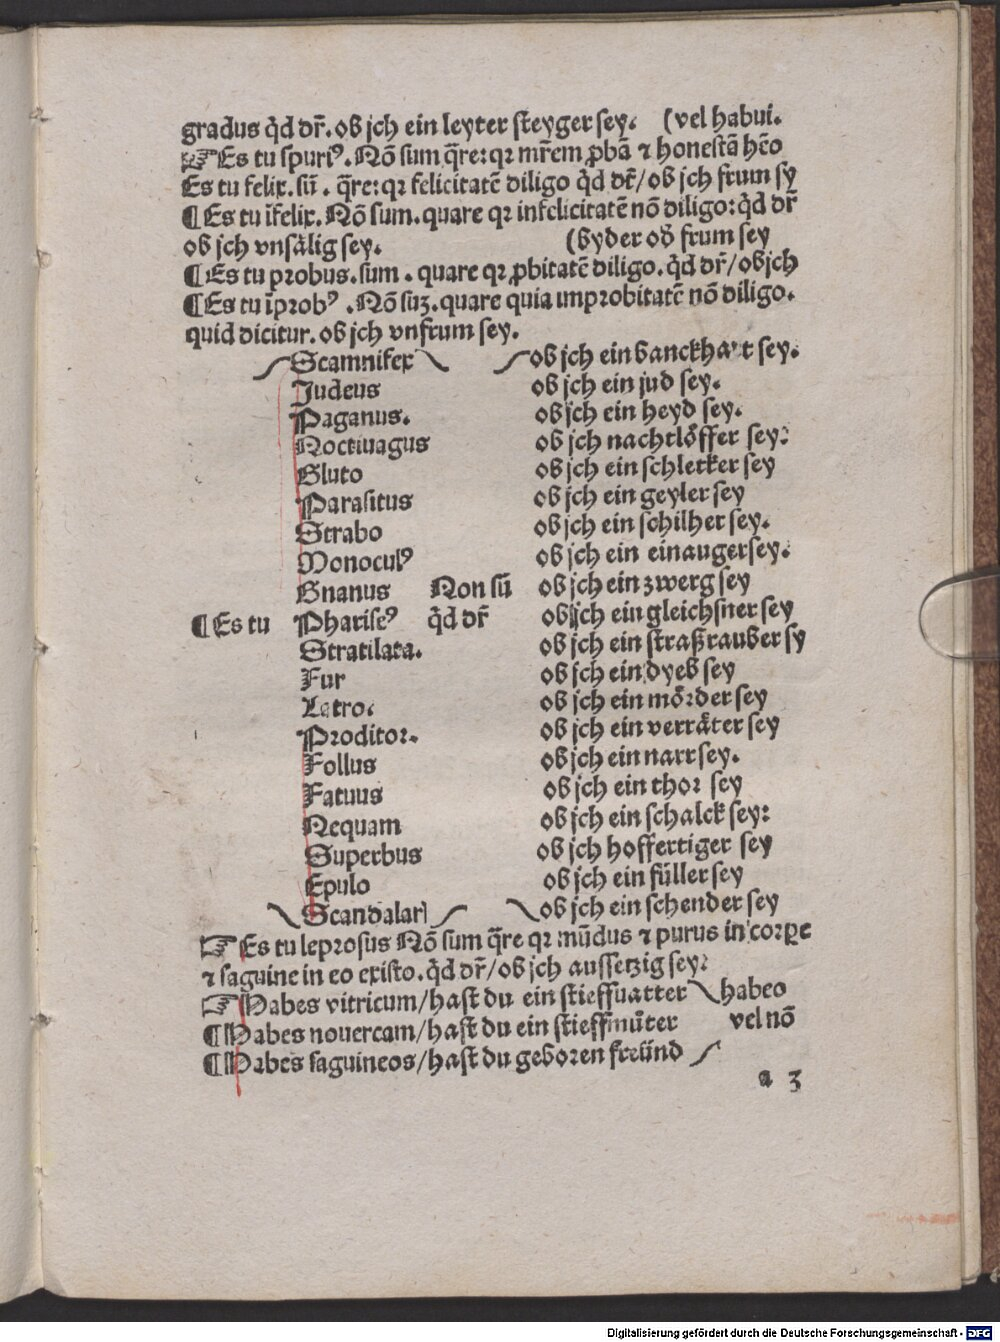 gradus q̄d dr̄. ob jch ein leyter steyger sey. (vel habui.
☞ Es tu spuriꝰ. Nō sum q̄re: qꝛ mr̄em ꝓbā ⁊ honestā hēo
Es tu felix. sū. q̄re: qꝛ felicitatē diligo q̄d dr̄/ ob jch frum sy
¶ Es tu īfelix. Nō sum. quare qꝛ infelicitatē nō diligo: q̄d dr̄
ob jch vnsälig sey. (byder od̄ frum sey
¶ Es tu probus. sum. quare qꝛ ꝓbitatē diligo. q̄d dr̄/ ob jch
¶ Es tu īprobꝰ. Nō suꝫ. quare quia improbitatē nō diligo.
quid dicitur. ob jch vnfrum sey.
Scamnifex ob jch ein banckhart sey.
Judeus ob jch ein jud sey.
Paganus. ob jch ein heyd sey.
Noctiuagus ob jch nachtlöffer sey:
Gluto ob jch ein schlecker sey
Parasitus ob jch ein geyler sey
Strabo ob jch ein schilher sey.
Monoculꝰ ob jch ein einauger sey.
Gnanus Non sū ob jch ein zwerg sey
¶ Es tu Phariseꝰ q̄d dr̄ ob jch ein gleichsner sey
Stratilata. ob jch ein straßrauber sy
Fur ob jch ein dyeb sey
Latro. ob jch ein mörder sey
Proditor. ob jch ein verräter sey
Follus ob jch ein narr sey.
Fatuus ob jch ein thor sey
Nequam ob jch ein schalck sey:
Superbus ob jch hoffertiger sey
Epulo ob jch ein füller sey
Scandalari ob jch ein schender sey
☞ Es tu leprosus Nō sum q̄re qꝛ mūdus ⁊ purus in corꝑe
⁊ saguine in eo existo. q̄d dr̄/ ob jch aussetzig sey:
☞ Habes vitricum/ hast du ein stieffuatter habeo
¶ Habes nouercam/ hast du ein stieffmuͤter vel nō
¶ Habes saguineos/ hast du geboren freünd
a 3
Digitalisierung gefördert durch die Deutsche Forschungsgemeinschaft - DFG